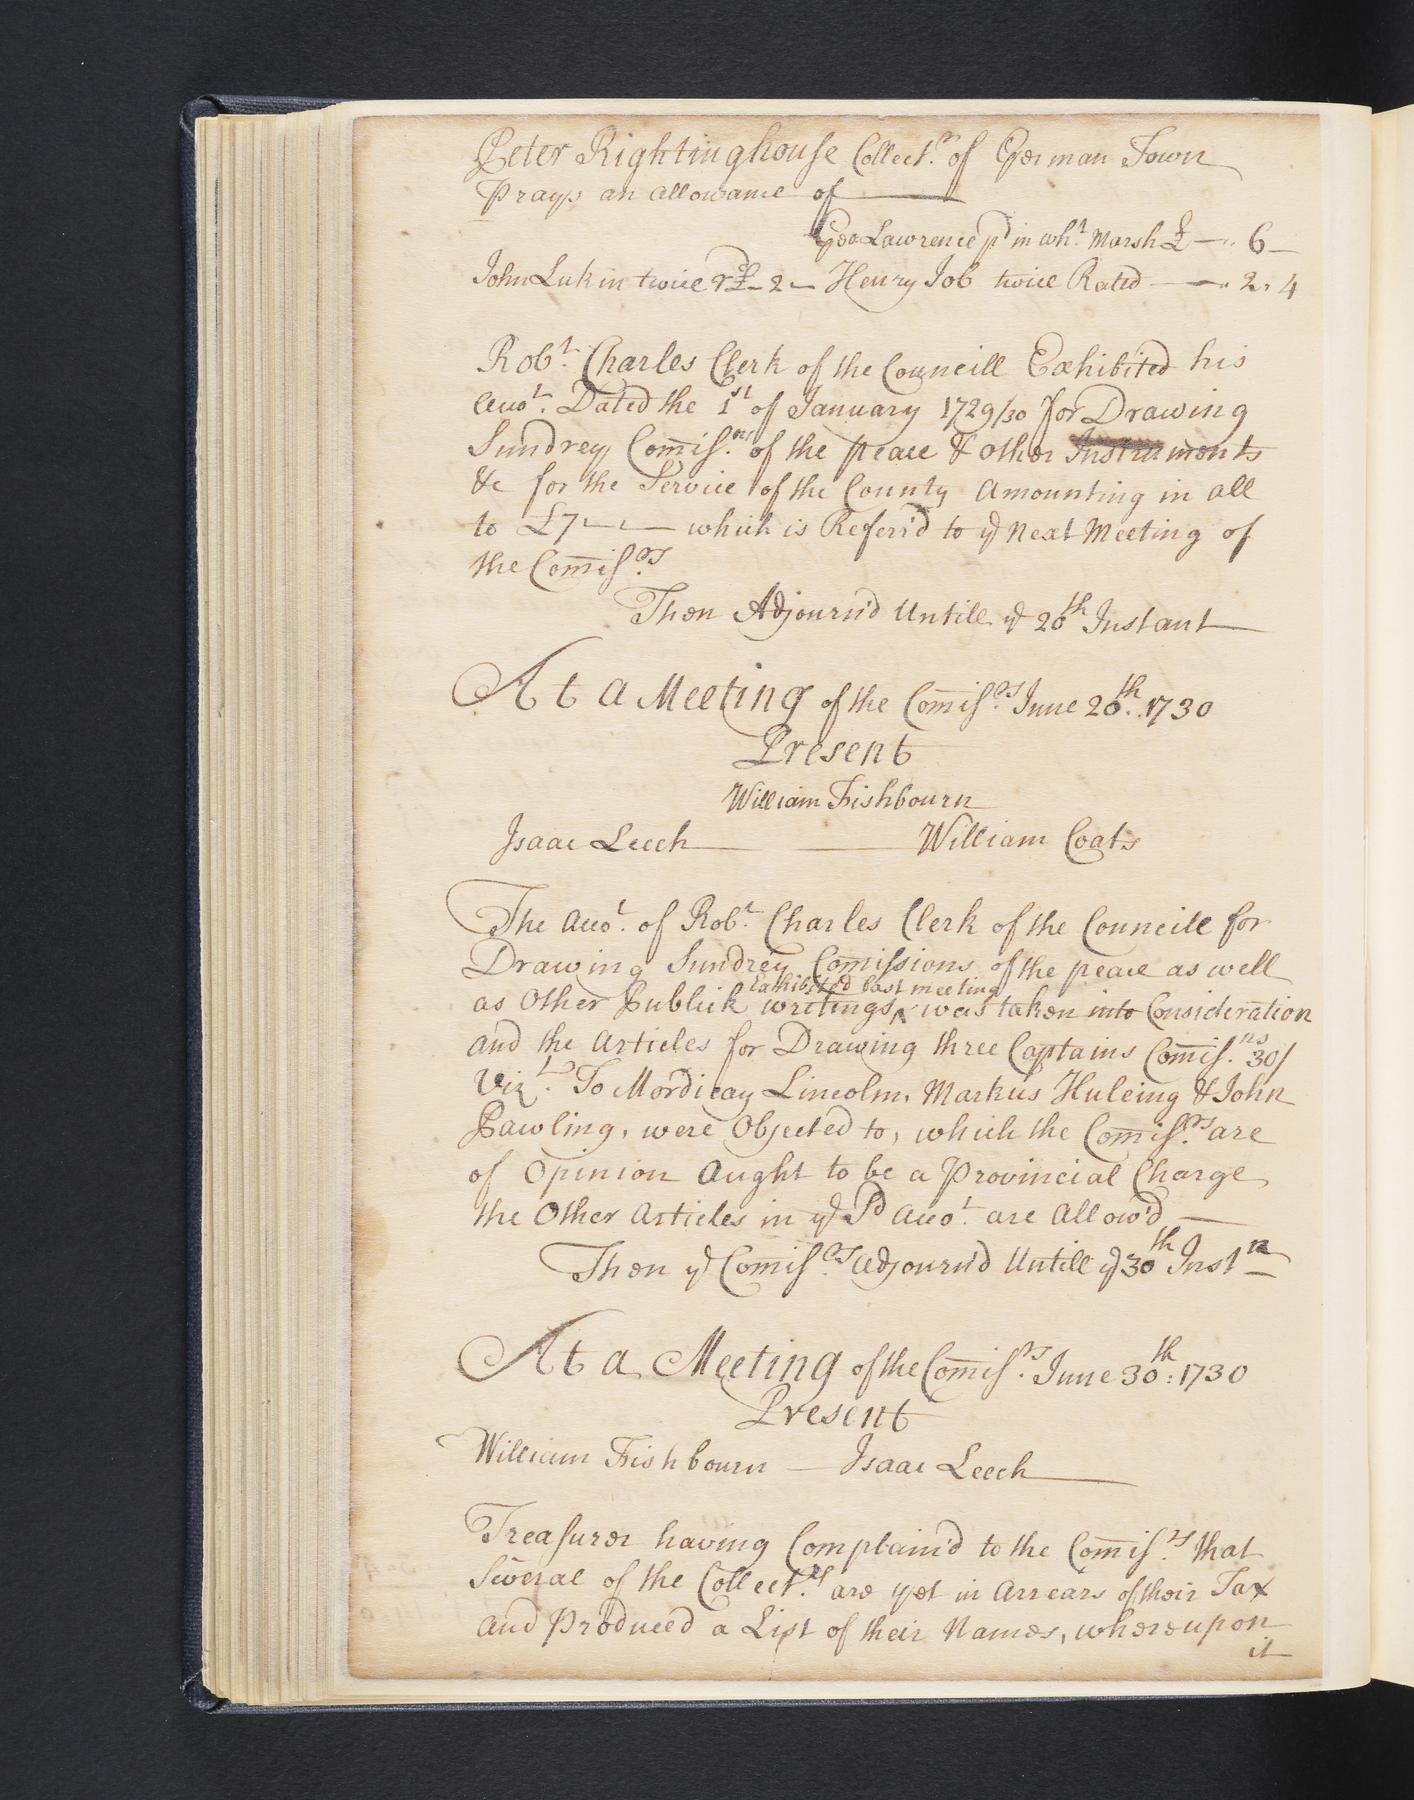 Peter Rightinghouse Collect.r of German Town
Prays an allowance of
Geo Lawrence pd in wht. Marsh £ — " 6 —
John Lukin twice rd £ - 2 — Henry Job twice Rated — " 2 " 4
Robt. Charles Clerk of the Councill Exhibited his
Accot. Dated the 1st of January 1729/30 for Drawing
Sundrey Comiss.ns of the peace & other Instruments
&c for the Service of the County Amounting in all
to £7 — — which is Referr'd to ye Next Meeting of
the Comiss.rs
Then Adjourn'd Untill ye 20th Instant
At a Meeting of the Comiss.rs June 20th. 1730
Present
William Fishbourn
Isaac Leech — William Coats
The Accot. of Robt. Charles Clerk of the Councill for
Drawing Sundrey Comissions of the peace as well
Exhibited last meeting
as Other Publick writings ^ was taken into Consideration
and the Articles for Drawing three Captains Comiss.ns 30/
Vizt. To Mordicay Lincolm, Markus Huleing & John
Pawling, were Objected to, which the Comiss.rs are
of Opinion Aught to be a Provincial Charge
the Other Articles in ye Sd Accot. are Allow'd —
Then ye Comiss.rs Adjourn'd Untill ye 30th Inst
At a Meeting of the Comiss.rs June 30th: 1730
Present
William Fishbourn — Isaac Leech
Treasurer having Complain'd to the Comiss.rs that
Several of the Collect.rs are yet in Arrears of their Tax
and Produced a List of their Names, whereupon
it